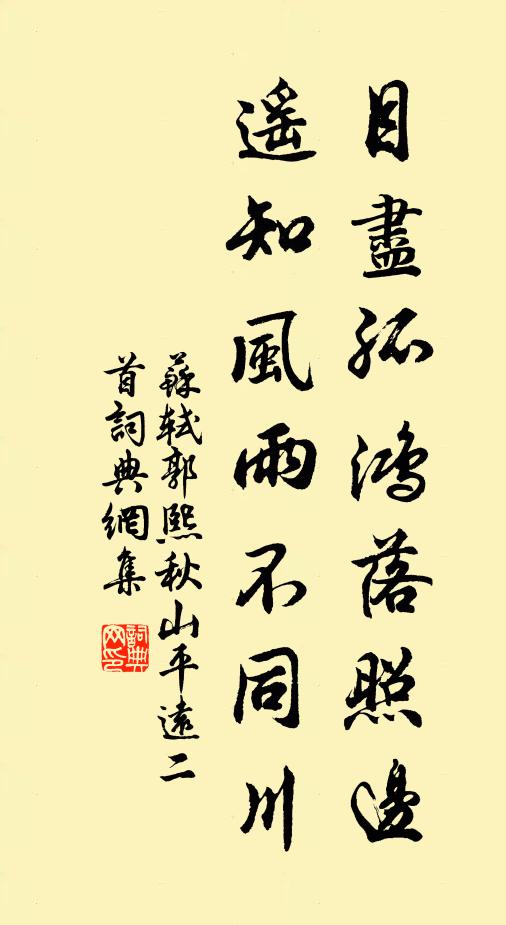 目盡孤鴻落照邊
遥知風雨不同川
蘇軾郭熙秋山平遠二
首詞典網集
詞典
网印